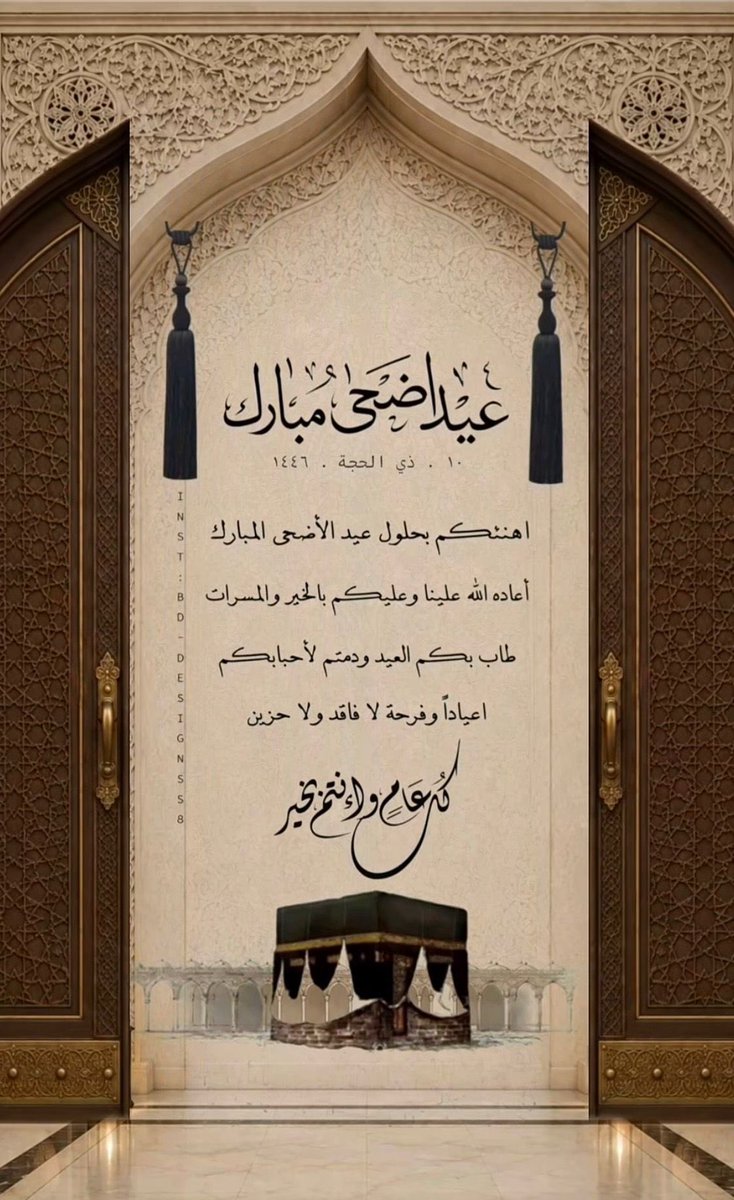 عيد اضحى مبارك
١٠ . ذي الحجة . ١٤٤٦
اهنئكم بحلول عيد الأضحى المبارك
أعاده الله علينا وعليكم بالخير والمسرات
طاب بكم العيد ودمتم لأحبابكم
اعياداً وفرحة لا فاقد ولا حزين
كل عام وانتم بخير
INST:BD-DESIGNSS8